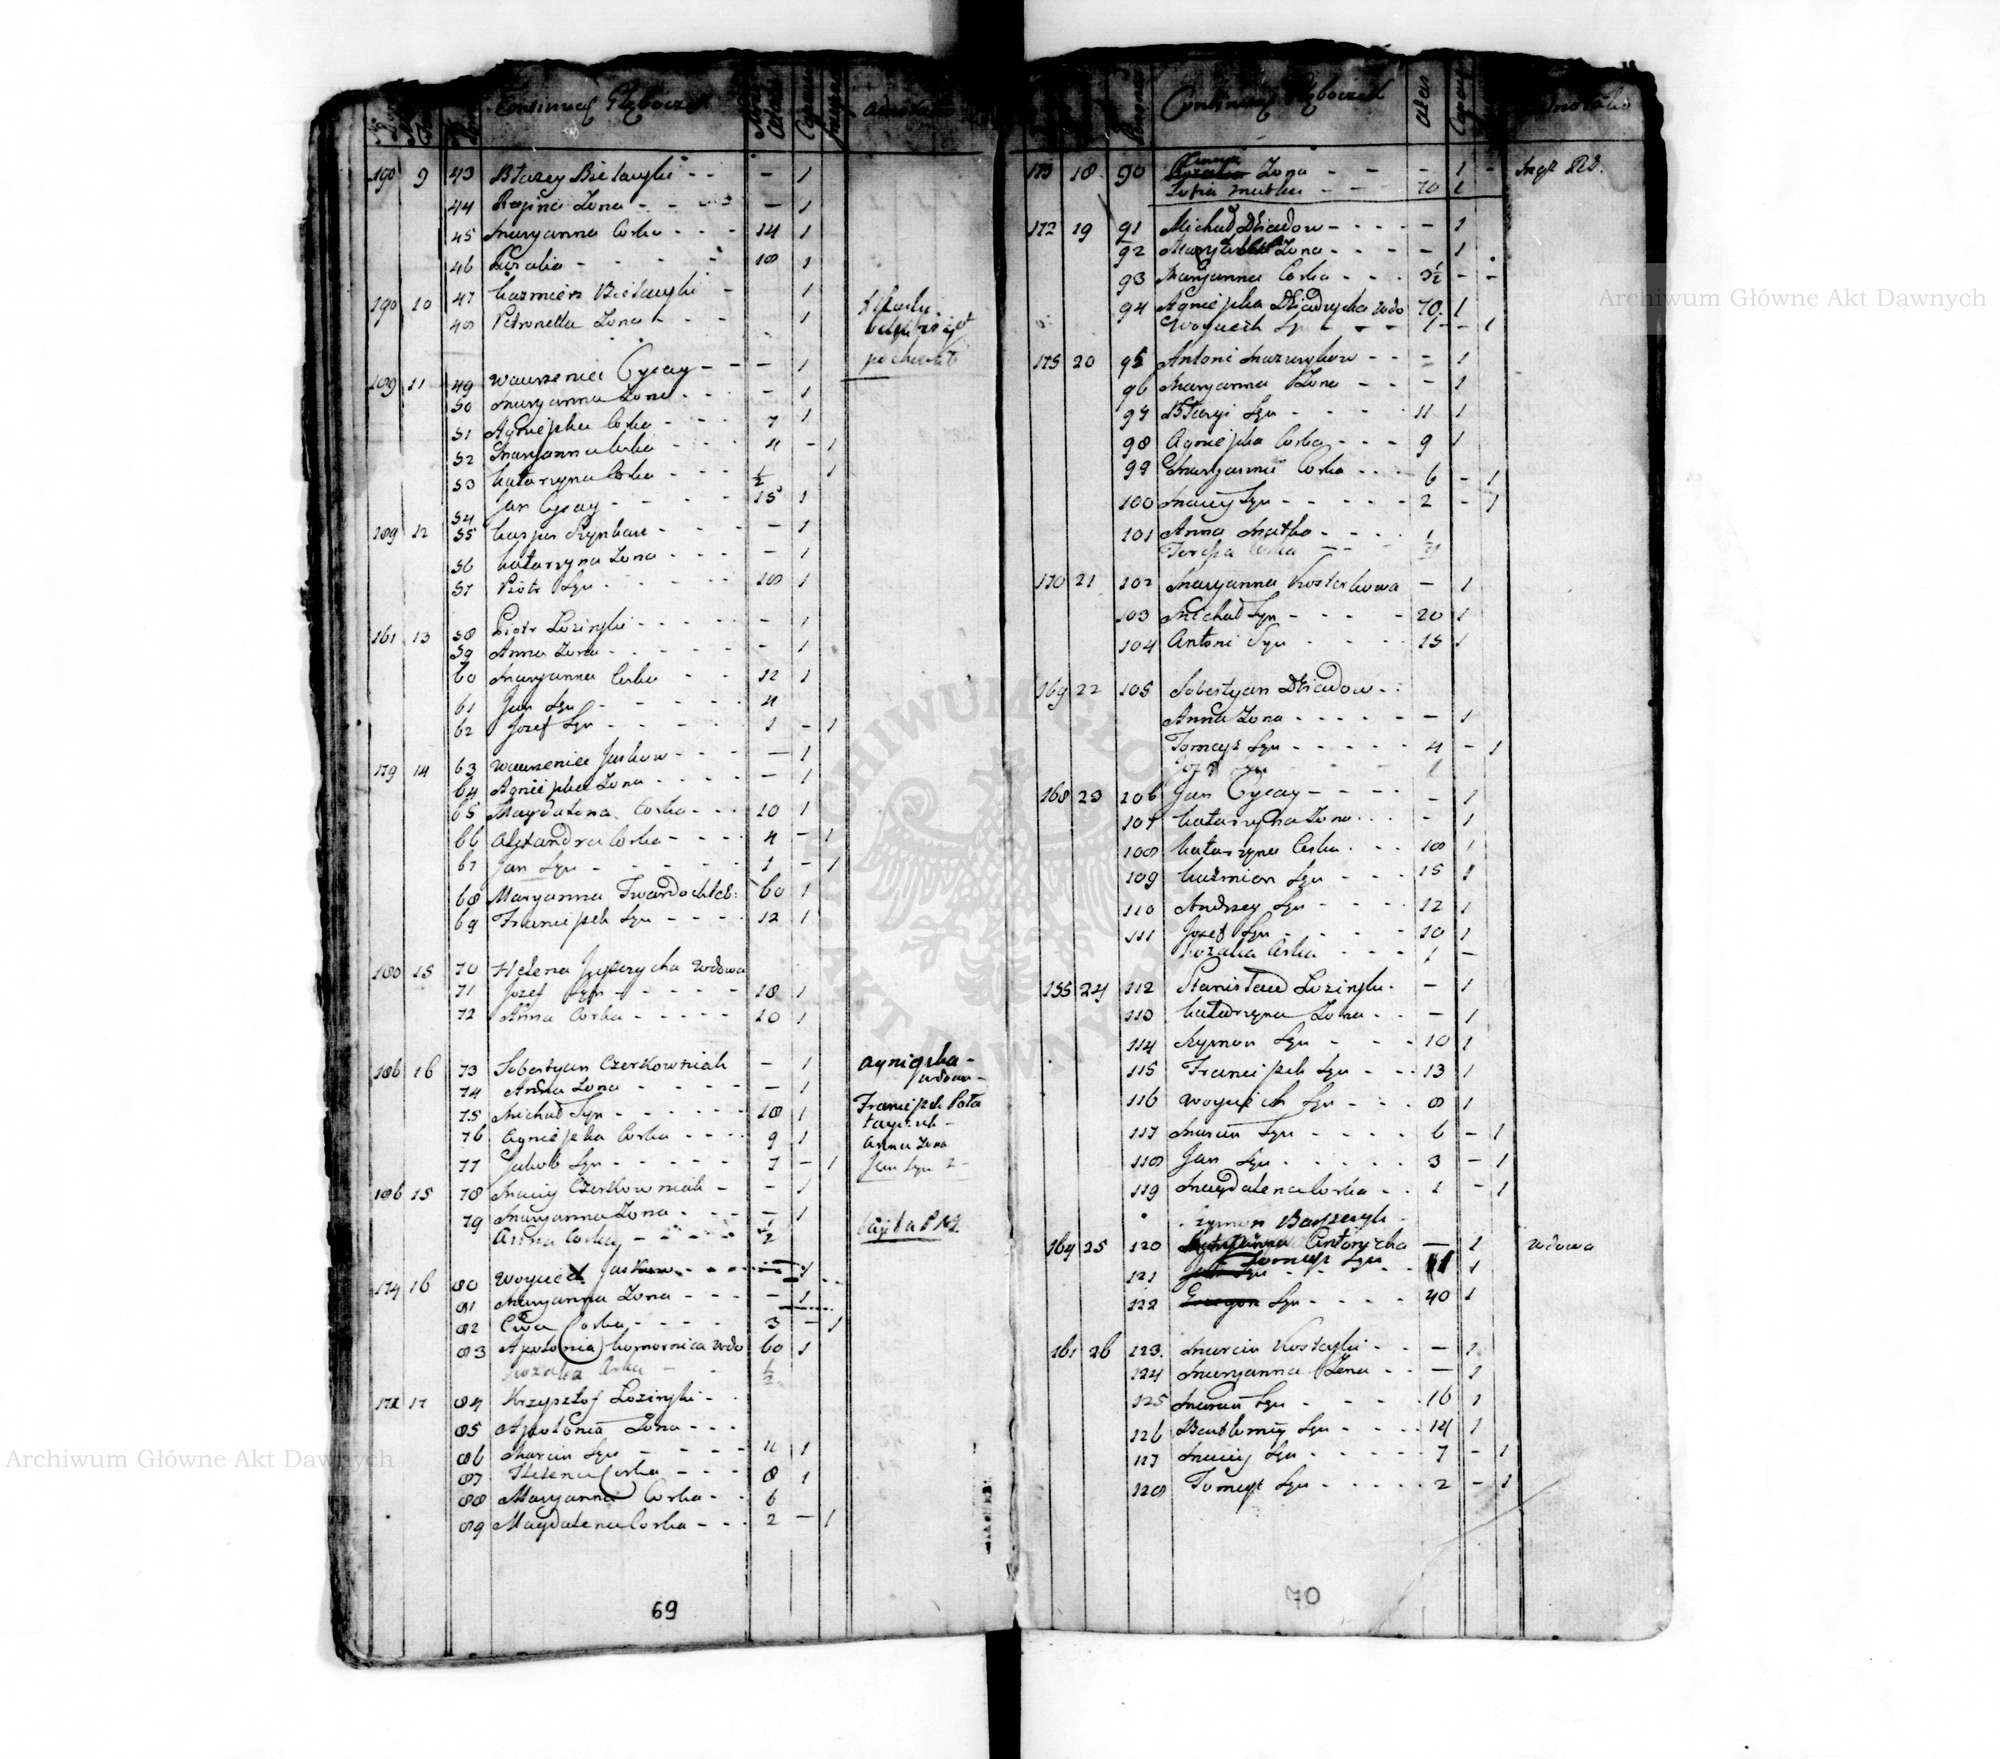 190 9 43 Błazey Bielawski - - - 1
44 Regina Zona - - - - 1
45 Maryanna Corka - - - 14 1
46 Rozalia - - - - 18 1
190 10 47 Kazmierz Bielawski - 1
48 Petronella Zona - - 1
189 11 49 Wawrzeniec Cycay - - - 1
50 Maryanna Zona - - - 1
51 Agnieszka Corka - - - 7 1
52 Maryanna Corka 4 - 1
53 Katarzyna Corka - - - 1/2 1
54 Jan Cycay - - - - 15 1
189 12 55 Kasper - - - - 1
56 Katarzyna Zona - - - - 1
57 Piotr Syn - - - - 18 1
161 13 58 Piotr Lozinski - - - - - 1
59 Anna Zona - - - - - - 1
60 Maryanna Corka - - 12 1
61 Jan Syn - - - - 4
62 Jozef Syn - - - - - 1 - 1
179 14 63 Wawrzeniec Jaskow - - - - 1
64 Agnieszka Zona - - - - - 1
65 Magdalena Corka - - - 10 1
66 Alexandra Corka - - - - 4 - 1
67 Jan Syn - - - - - - 1 - 1
68 Maryanna Twardochleb: 60 1
69 Franciszek Syn - - - - 12 1
180 15 70 Helena Wdowa
71 Jozef Syn - - - - - 18 1
72 Anna Corka - - - - - 20 1
186 16 73 Sobestyan Czerkowniak - 1
74 Anna Zona - - - - - - 1
75 Michał Syn - - - - - 18 1
76 Agnieszka Corka - - - - 9 1
77 Jakob Syn - - - - - 7 - 1
Agnieszka -
wdowa -
Franciszek
Anna Zona
Jan Syn 2 -
186 15 78 Maciey Czerkowniak - - 1
79 Maryanna Zona - - - - 1
Anna Corka - - - - - 1/2
174 16 80 Woyciech Jaskow - - - - - 1
81 Maryanna Zona - - - - 1
82 Ewa Corka - - - - 3 - 1
83 Apolonia Komornica wdo 60 1
Rozalia Corka - - - 1/2
17 84 Krzysztof Lozinski - -
85 Apolonia Zona - - -
86 Marcin Syn - - - - 11 1
87 Helena Corka - - - 8 1
88 Maryanna Corka - - 6
89 Magdalena Corka - - - 2 - 1
69
18 90 Zona - - - - 1 -
Zofia matka - - - 70 1
172 19 91 Michał Dziadow - - - - - 1
92 Zona - - - - - 1
93 Maryanna Corka - - - 3 1/2 - -
94 Agnieszka Dziadzycha wdo 70 1
Woyciech Syn - - - 1 - 1
175 20 95 Antoni Mazurykow - - - 1
96 Maryanna Zona - - - 1
97 Błazy Syn - - - - 11 1
98 Agnieszka Corka - - - 9 1
99 Maryanna Corka - - - 6 - 1
100 Maciey Syn - - - - - 2 - 1
101 Anna Matka - - - -
Corka - - -
170 21 102 Maryanna Kosterkowa - 1
103 Michał Syn - - - - - 20 1
104 Antoni Syn - - - - 15 1
169 22 105 Sobestyan Dziadow - :
Anna Zona - - - - - - 1
Tomasz Syn - - - - - 4 - 1
Jozef Syn - - 1
168 23 106 Jan Cycay - - - - - 1
107 Katarzyna Zona - - - - 1
108 Katarzyna Corka - - - 18 1
109 Kazmierz Syn - - - 15 1
110 Andrzey Syn - - - - 12 1
111 Jozef Syn - - - - - 10 1
Rozalia Corka - - - - 1 -
155 24 112 Stanisław Lozinski - - 1
113 Katarzyna Zona - - - 1
114 Szymon Syn - - - - 10 1
115 Franciszek Syn - - - 13 1
116 Woyciech Syn - - - 8 1
117 Marcin Syn - - - - 6 - 1
118 Jan Syn - - - - - 3 - 1
119 Magdalena Corka - - 1 - 1
Szymon
164 25 120 Antonycha - 1 wdowa
121 Tomasz Syn 1
122 Syn - - - - 40 1
161 26 123. Marcin Kostecki - - - 1
124 Maryanna Zona - - - 1
125 Marcin Syn - - - - 16 1
126 Bartłomiey Syn - - - - 14 1
127 Maciey Syn - - - - - 7 - 1
128 Tomasz Syn - - - - - 2 - 1
70
Archiwum Główne Akt Dawnych
Archiwum Główne Akt Dawnych
ARCHIWUM GŁÓWNE AKT DAWNYCH